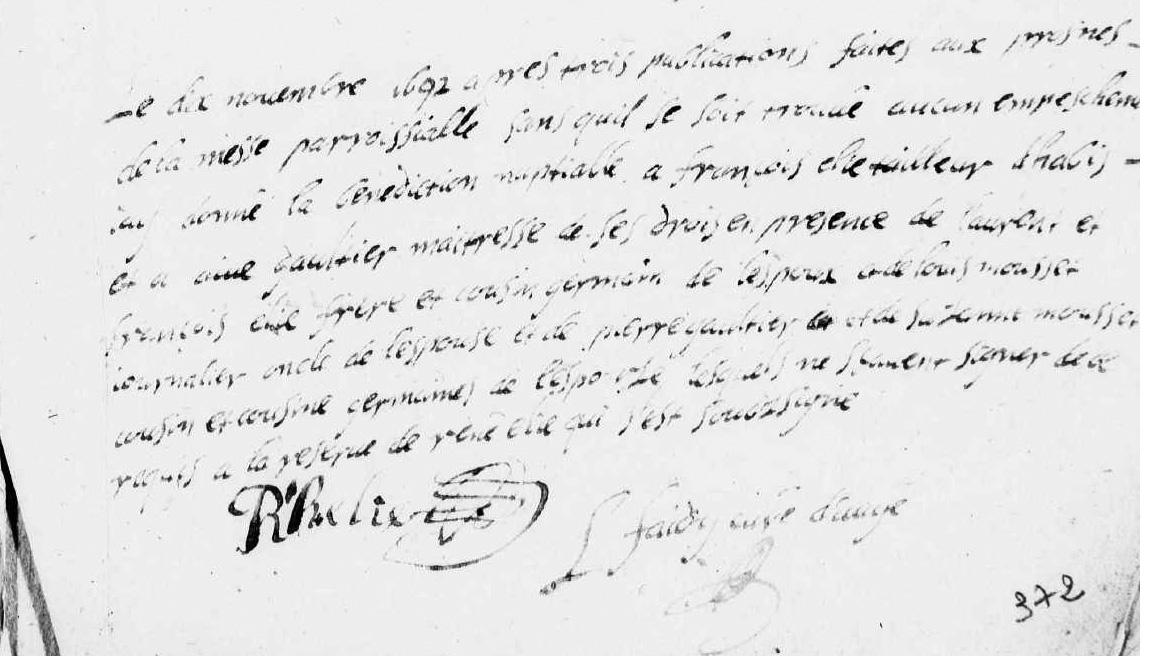 Le dix nouembre 1692 apres trois publications faites aux prosnes
de la messe parroissialle sans quil se soit trouué aucun empeschem
iay donné la benediction nuptialle a françois elie tailleur dhabis
et a gaultier maitresse de ses drois en presence de laurent et
françois elie frere et cousin germain de lespoux et de louis mousset
iournalier oncle de lespouse et de pierre gaultier et de suzanne mousset
cousin et cousine germaines de lespouse lesquels ne scauent signer de ce
requis a la reserue de rené elie qui s'est soubsigné
R helie L faidy curé
372